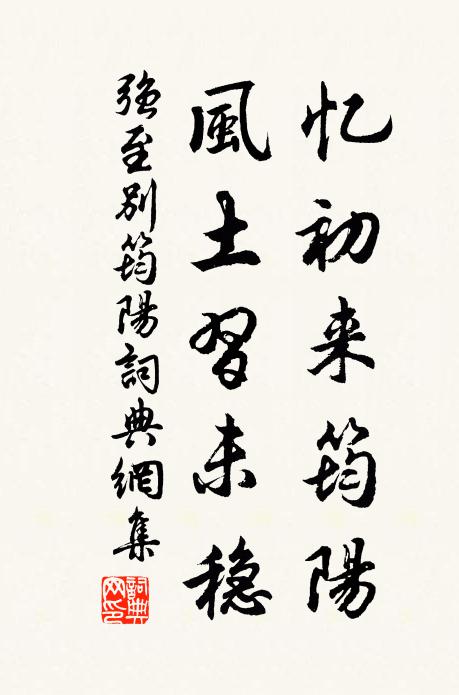 忆初来筠陽
風土習未穏
強至别筠陽詞典網集
詞典
网印